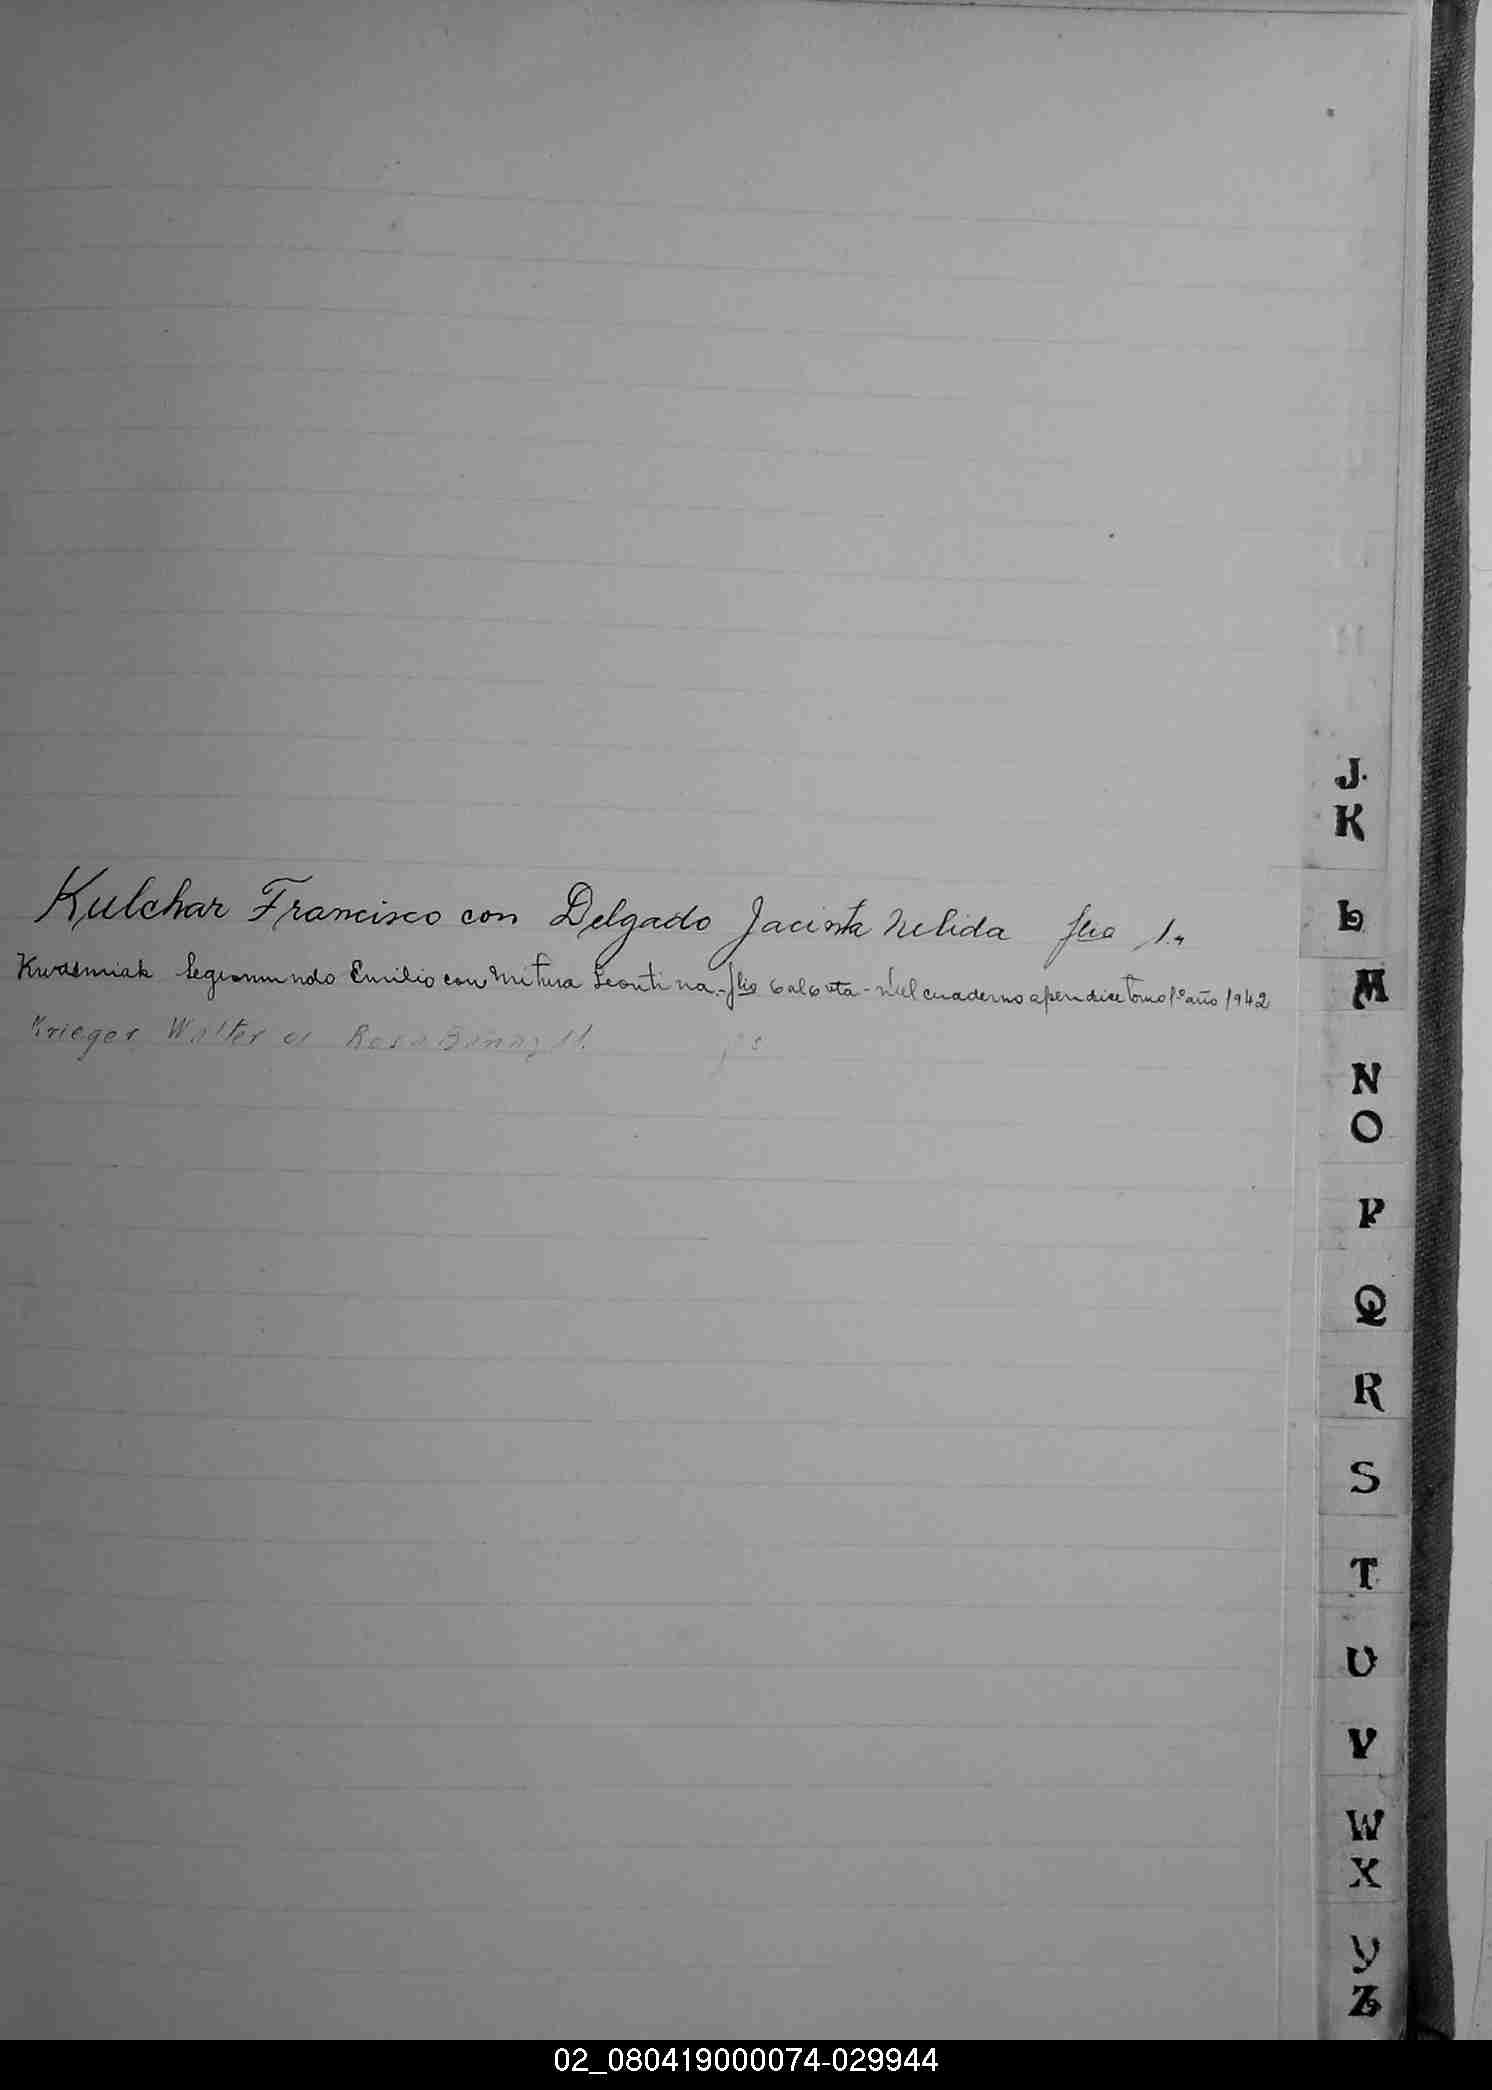 J.
K
Kulchar Francisco con Delgado Jacinta Nelida flio 1.
L
Segismundo Emilio con Mitura Leontina - flio - cuaderno apendice tomo 1º año 1942
M
Krieger Walter c/ Rosa
N
O
P
Q
R
S
T
U
V
W
X
Y
Z
02_080419000074-029944